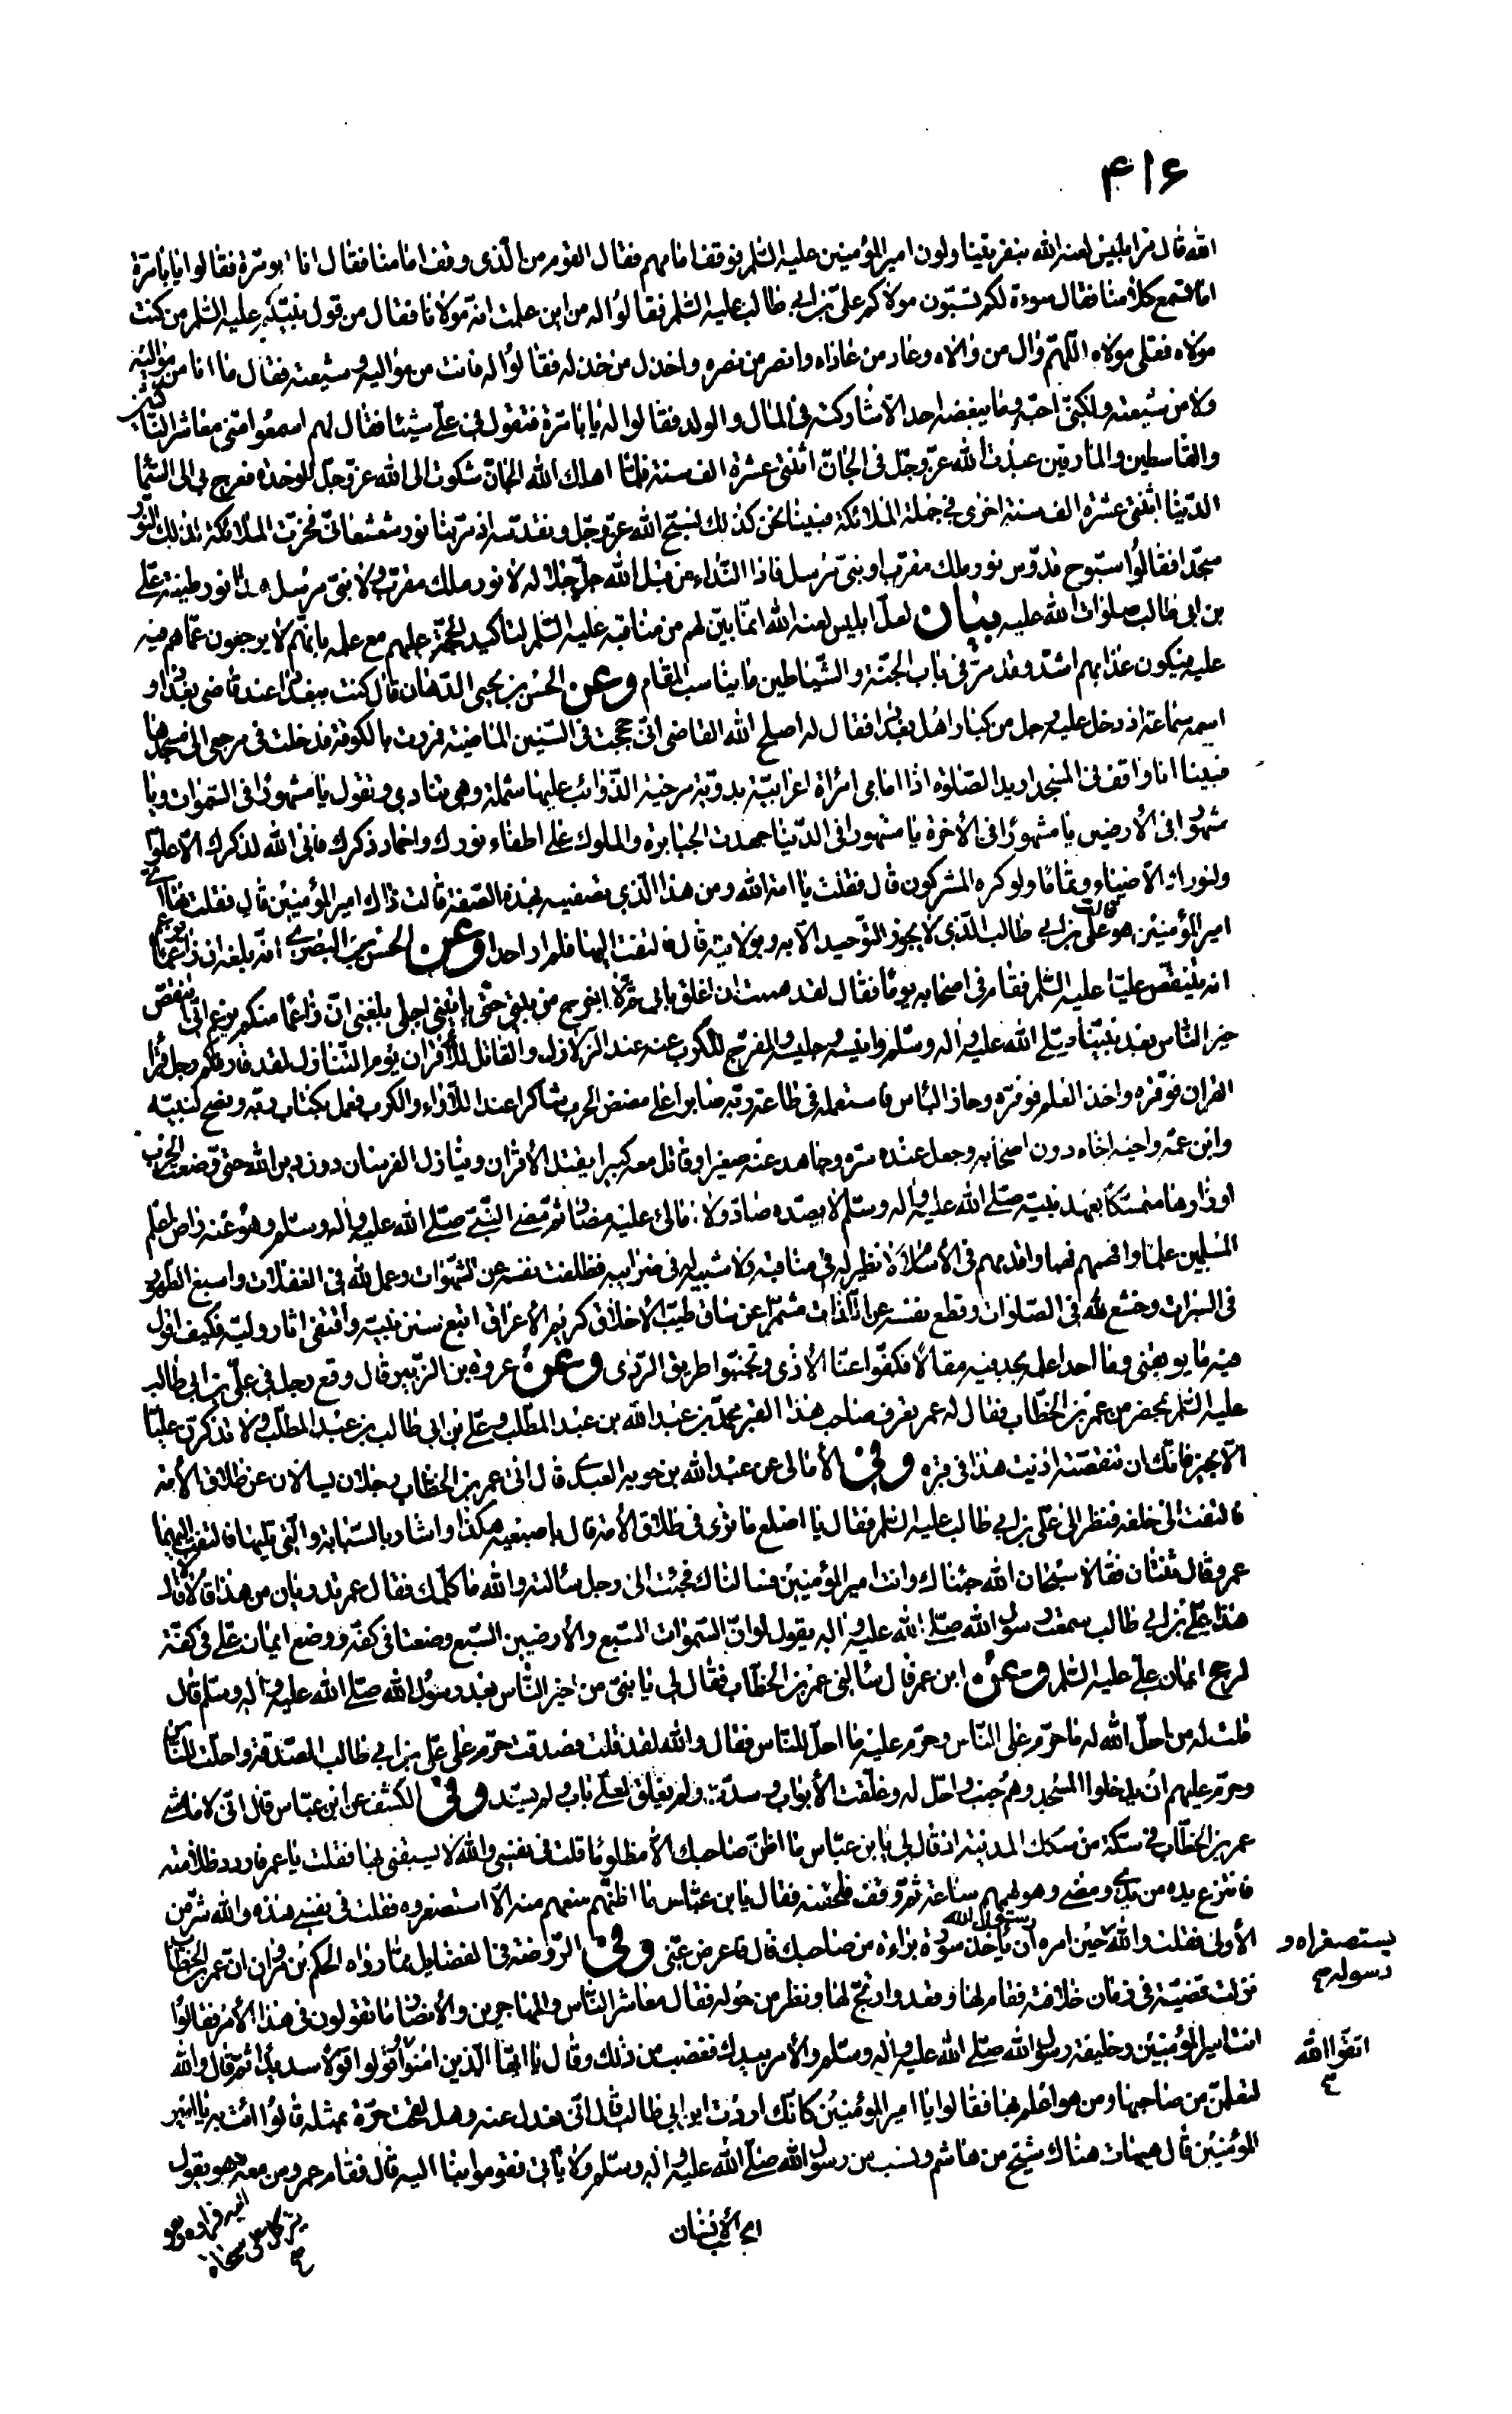 ۴۱۶
انه قال مر ابليس لعنه الله بنفر يتناولون امير المؤمنين عليه السّلم فوقف امامهم فقال القوم من الّذى وقف امامنا فقال انا ابو مرّة فقالوا يا ابا مرّة
اما تسمع كلامنا فقال سوءة لكم تسبّون مولاكم علىّ بن ابى طالب عليه السّلم فقالوا له من اين علمت انّه مولانا فقال من قول نبيّكم عليه السّلم من كنت
مولاه فعلى مولاه اللّهمّ وال من والاه وعاد من عاداه وانصر من نصره واخذل من خذله فقالوا له فانت من مواليه وشيعته فقال ما انا من مواليه
ولا من شيعته ولكنّى احبّه وما يبغضه احد الّا شاركته فى المال والولد فقالوا له يا ابا مرّة فتقول فى علىّ شيئا فقال لهم اسمعوا منّى معاشر النّاكثين
والقاسطين والمارقين عبدت الله عزّ وجلّ فى الجانّ اثنتى عشرة الف سنة فلمّا اهلك الله الجانّ شكوت الى الله عزّ وجلّ الوحدة فعرج بى الى السّماء
الدّنيا اثنتى عشرة الف سنة اخرى فى جملة الملائكة فبينا نحن كذلك نسبّح الله عزّ وجلّ ونقدّسه اذ مرّ بنا نور شعشعانىّ فخرّت الملائكة لذلك النّور
سجّدا فقالوا سبّوح قدّوس نور ملك مقرّب او نبىّ مرسل فاذا النّداء من قبل الله جلّ جلاله لا نور ملك مقرّب ولا نبىّ مرسل هذا نور طينة علىّ
بن ابى طالب صلوات الله عليه بيان لعلّ ابليس لعنه الله انّما بيّن لهم من مناقبه عليه السّلم لتاكيد الحجّة عليهم مع علمه بانّهم لا يرجعون عمّا هم فيه
عليه فيكون عذابهم اشدّ وقد مرّ فى باب الجنّة والشّياطين ما يناسب المقام وعن الحسن بن يحيى الدّهّان قال كنت ببغداد عند قاضى بغداد و
اسمه سماعة اذ دخل عليه رجل من كبار اهل بغداد فقال له اصلح الله القاضى انّى حججت فى السّنين الماضية فمررت بالكوفة فدخلت فى مرجعى الى مسجدها
فبينا انا واقف فى المسجد اريد الصّلوة اذا امامى امرأة اعرابيّة بدويّة مرخية الذّوائب عليها شملة وهى تنادى وتقول يا مشهورا فى السّموات ويا
مشهورا فى الأرضين يا مشهورا فى الأخرة يا مشهورا فى الدّنيا جهدت الجبابرة والملوك على اطفاء نورك واخماد ذكرك فابى الله لذكرك الّا علوّا
ولنورك الّا ضياء وتماما ولو كره المشركون قال فقلت يا امة الله ومن هذا الّذى تصفينه بهذه الصّفة قالت ذاك امير المؤمنين قال فقلت لها اىّ
امير المؤمنين هو قالت علىّ بن ابى طالب الّذى لا يجوز التّوحيد الّا به وبولايته قال فالتفت اليها فلم ار احدا وعن الحسن البصرى انّه بلغه ان زاعما يزعم
انه ينتقص عليّا عليه السّلم فقام فى اصحابه يوما فقال لقد هممت ان اغلق بابى ثمّ لا اخرج من بيتى حتّى يأتينى اجلى بلغنى انّ زاعما منكم يزعم انّى انتقص
خير النّاس بعد نبيّنا صلّى الله عليه واله وسلّم وانيسه وجليسه والمفرّج للكرب عنه عند الزّلازل والقاتل للأقران يوم التّنازل لقد فارقكم رجل قرأ
القران فوقّره واخذ العلم فوفّره وحاز البأس فاستعمله فى طاعة ربّه صابرا على مضض الحرب شاكرا عند اللّأواء والكرب فعمل بكتاب ربّه ونصح لنبيّه
وابن عمّه واخيه اخاه دون اصحابه وجعل عنده سرّه وجاهد عنه صغيرا وقاتل معه كبيرا يقتل الأقران وينازل الفرسان دون دين الله حتّى وضعت الحرب
اوزارها متمسّكا بعهد نبيّه صلّى الله عليه واله وسلّم لا يصدّه صادّ ولا يمالى عليه مضادّ ثمّ مضى النّبىّ صلّى الله عليه واله وسلّم وهو عنه راض اعلم
المسلمين علما وافهمهم فهما واقدمهم فى الأسلام لا نظير له فى مناقبه ولا شبيه له فى ضرائبه فظلفت نفسه عن الشّهوات وعمل لله فى الغفلات واسبغ الطّهور
فى السّبرات وخشع لله فى الصّلوات وقطع نفسه عن اللّذّات مشمّرا عن ساق طيّب الأخلاق كريم الأعراق اتّبع سنن نبيّه واقتفى اثار وليّه فكيف اقول
فيه ما يوبقنى وما احد اعلمه يجد فيه مقالا فكفّوا عنّا الأذى وتجنّبوا طريق الرّدى وعن عروة بن الزّبير قال وقع رجل فى علىّ بن ابى طالب
عليه السّلم بمحضر من عمر بن الخطّاب فقال له عمر تعرف صاحب هذا القبر محمّد بن عبد الله بن عبد المطّلب وعلىّ بن ابى طالب بن عبد المطّلب ولا تذكرنّ عليّا
الّا بخير فانّك ان تنقّصته اذيت هذا فى قبره وفى الأمالى عن عبد الله بن خويد العبدى قال اتى عمر بن الخطّاب رجلان يسألان عن طلاق الأمة
فالتفت الى خلفه فنظر الى علىّ بن ابى طالب عليه السّلم فقال يا اصلع ما ترى فى طلاق الأمة قال باصبعيه هكذا واشار بالسّبّابة والّتى تليها فالتفت اليهما
عمر وقال ثنتان فقالا سبحان الله جئناك وانت امير المؤمنين فسالناك فجئت الى رجل سألته والله ما كلّمك فقال عمر تدريان من هذا قالا لا قال
هذا علىّ بن ابى طالب سمعت رسول الله صلّى الله عليه واله يقول لو انّ السّموات السّبع والأرضين السّبع وضعتا فى كفّة ووضع ايمان علىّ فى كفّة
لرجح ايمان علىّ عليه السّلم وعن ابن عمر قال سألنى عمر بن الخطّاب فقال لى يا بنىّ من اخير النّاس بعد رسول الله صلّى الله عليه واله وسلّم قال
قلت له من احلّ الله له ما حرّم على النّاس وحرّم عليه ما احلّ للنّاس فقال والله لقد قلت فصدقت حرّم على علىّ بن ابى طالب الصّدقة واحلّت للنّاس
وحرّم عليهم ان يدخلوا المسجد وهم جنب واحلّ له وغلّقت الأبواب وسدّت ولم يغلق لعلىّ باب ولم يسدّ وفى الكشف عن ابن عبّاس قال انّى لاماشى
عمر بن الخطّاب فى سكّة من سكك المدينة اذ قال لى يا بن عبّاس ما اظنّ صاحبك الّا مظلوما قلت فى نفسى والله لا يسبقنى بها فقلت يا عمر فاردد ظلامته
فانتزع يده من يدى ومضى وهو يهمهم ساعة ثمّ وقف فلحقته فقال يا بن عبّاس ما اظنّهم منعهم منه الّا استصغروه فقلت فى نفسى هذه والله شرّ من
الأولى فقلت والله حين امره ان يأخذ سورة براءة من صاحبك قال فاعرض عنّى وفى الرّوضة فى الفضايل ممّا رواه الحكم بن مروان انّ عمر بن الخطّاب
نزلت قضيّة فى زمان خلافته فقام لها وقعد وارتجّ لها ونظر من حوله فقال معاشر النّاس والمهاجرين والأنصار ما تقولون فى هذا الأمر فقالوا
انت امير المؤمنين وخليفة رسول الله صلّى الله عليه واله وسلّم والأمر بيدك فغضب من ذلك وقال يا ايّها الّذين امنوا قولوا قولا سديدا ثمّ قال والله
لتعلمنّ من صاحبها ومن هو اعلم بها فقالوا يا امير المؤمنين كانّك اردت ابن ابى طالب قال انّى نعدل عنه وهل لقحت حرّة بمثله قالوا ائت به يا امير
المؤمنين قال هيهات هناك شيخ من هاشم ونسب من رسول الله صلّى الله عليه واله وسلّم ولا يأتى فقوموا بنا اليه قال فقام عمر ومن معه وهو يقول
رسول الله
يستصغراه و
رسوله
اتقوا الله
ايحسب الأنسان